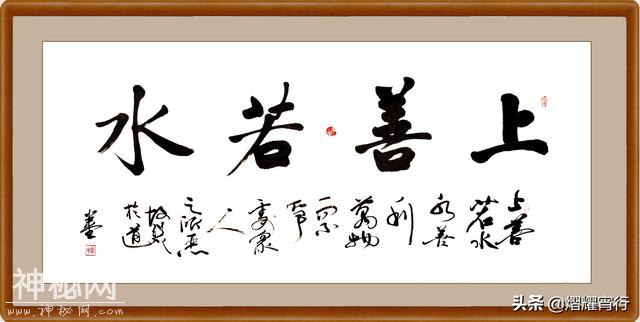 上善若水
上善
若水
水善
利
萬物
而不
爭
處衆
人
之所惡
故幾
於道
神秘网
www.神秘网.com
头条 @熠耀宵行